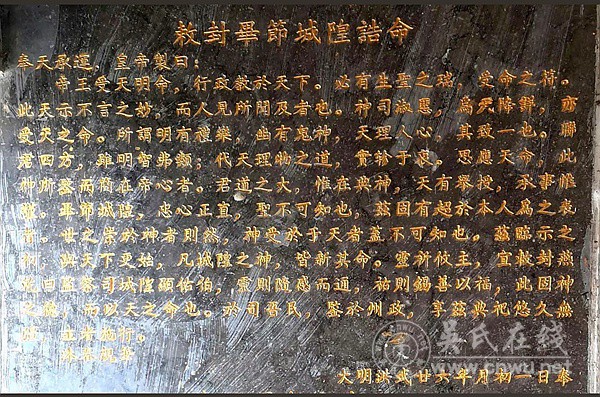 敕封畢節城隍誥命
奉天承運，皇帝製曰：
帝王受天明命，行政教於天下。必有生聖之瑞，受命之符。
此天示不言之妙，而人見所聞及者也。神司淑慝，為天降鮮，亦
受天之命。所謂明有禮樂，幽有鬼神，天理人心，其致一也。聯
君四方，雖明智弗類；代天理物之道，實於衷。思應天命，此
神所鑒而簡在帝心者。君道之大，惟在典神，天有舉授，承事惟
畢節城隍，忠心正直，聖不可知也，茲固有超於本人為之表
者。世之崇於神者則然，神受於于天者蓋不可知也。茲臨示之
初，與天下更始，凡城隍之神，皆新其命。靈祈攸主，宜敕封
曰監察司城隍顯佑伯，靈則隨感而通，祐則錫善以福，此固神
之德，而以天之命也。於司吾民，鑒於州政，享茲典祀悠久無
主者施行。
大明洪武廿六年月初一日奉
吳氏在线
www.cnwu.net